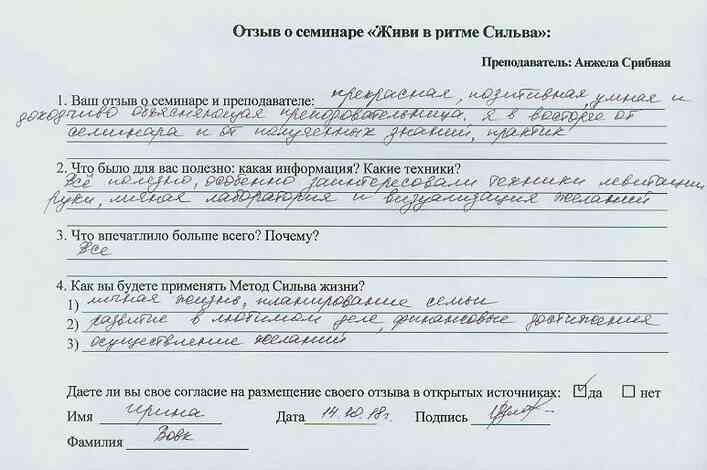 Отзыв о семинаре «Живи в ритме Сильва»:
Преподаватель: Анжела Срибная
1. Ваш отзыв о семинаре и преподавателе: прекрасная, позитивная, умная и
доходчиво объясняющая преподовательница. Я в восторге от
семинара и от полученных знаний, практик
2. Что было для вас полезно: какая информация? Какие техники?
Всё полезно, особенно заинтересовали техники левитации
руки, личная лаборатория и визуализация желаний
3. Что впечатлило больше всего? Почему?
Все
4. Как вы будете применять Метод Сильва жизни?
1) личная жизнь, планирование семьи
2) развитие в любимом деле, финансовые достижения
3) осуществление желаний
Даете ли вы свое согласие на размещение своего отзыва в открытых источниках: да нет
Имя Ирина Дата 14.10.18г. Подпись
Фамилия Вовк